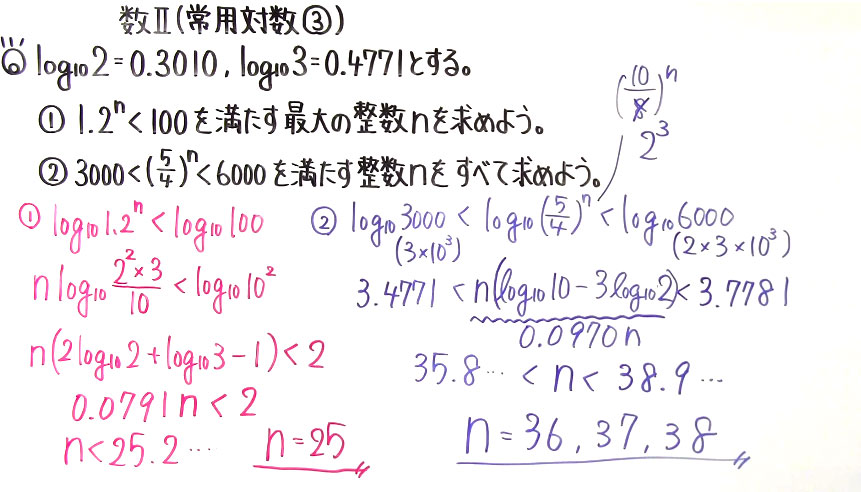 数Ⅱ(常用対数③)
log₁₀2=0.3010, log₁₀3=0.4771とする。
① 1.2ⁿ<100を満たす最大の整数nを求めよう。
② 3000<(5/4)ⁿ<6000を満たす整数nをすべて求めよう。
(10/8)ⁿ
2³
① log₁₀1.2ⁿ<log₁₀100
n log₁₀ (2²×3)/10 < log₁₀10²
n(2log₁₀2+log₁₀3-1)<2
0.0791n<2
n<25.2…
n=25
② log₁₀3000 < log₁₀(5/4)ⁿ < log₁₀6000
(3×10³) (2×3×10³)
3.4771 < n(log₁₀10-3log₁₀2) < 3.7781
0.0970n
35.8… < n < 38.9…
n=36, 37, 38